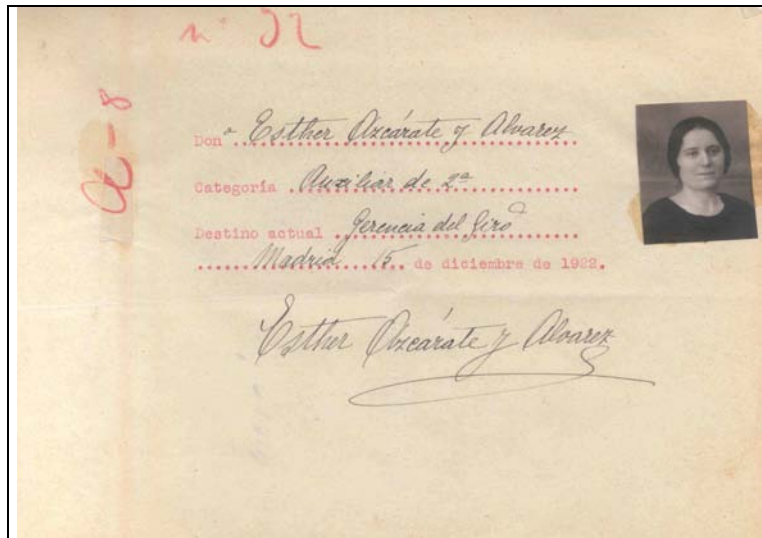 nº 92
A-8
Donª Esther Azcárate y Alvarez
Categoría Auxiliar de 2ª
Destino actual Gerencia del Giro
Madrid 15 de diciembre de 1922.
Esther Azcárate y Alvarez